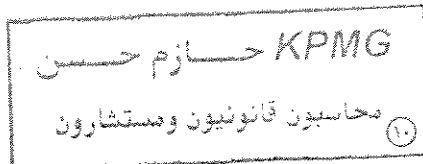 KPMG حازم حسن
محاسبون قانونيون ومستشارون
١٠